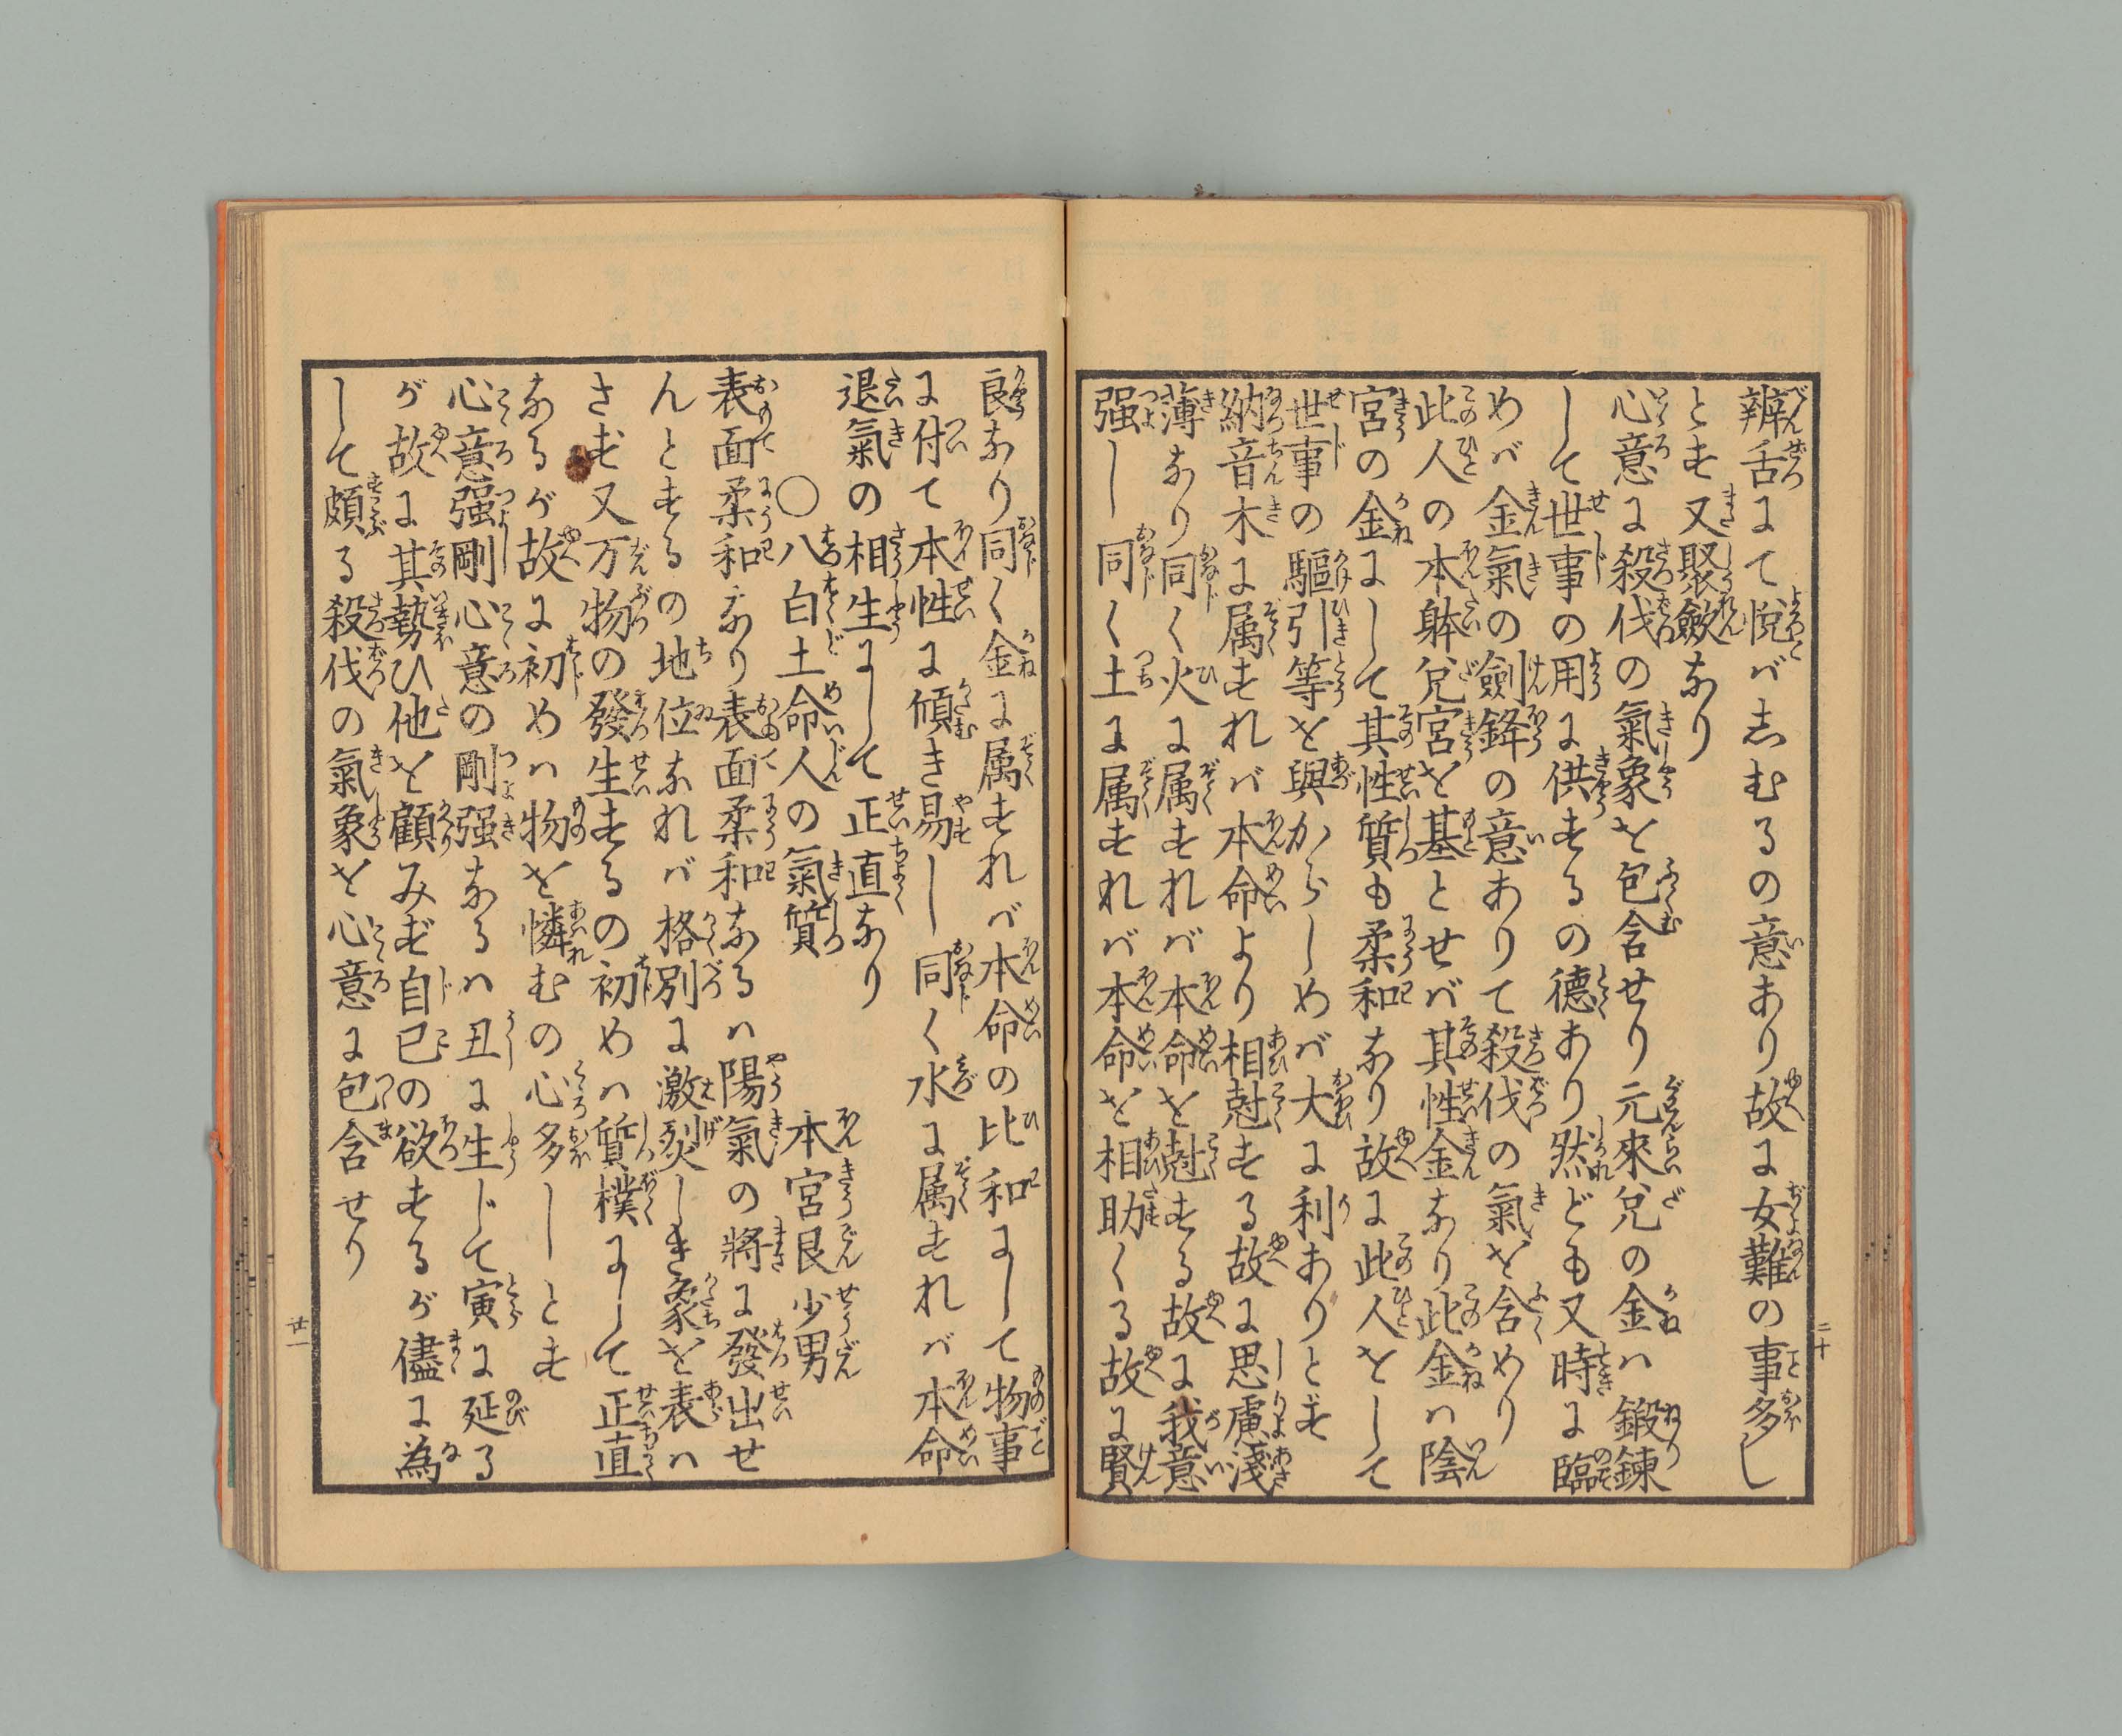 辨舌にて悅ばしむるの意あり故に女難の事多し
とす又聚斂なり
心意に殺伐の氣象を包含せり元來兌の金ハ鍛鍊
して世事の用に供するの德あり然ども又時に臨
めバ金氣の劍鋒の意ありて殺伐の氣を含めり
此人の本躰兌宮を基とせバ其性金なり此金ハ陰
宮の金にして其性質も柔和なり故に此人をして
世事の驅引等を與からしめバ大に利ありとす
納音木に属すれバ本命より相尅する故に思慮淺
薄なり同く火に属すれバ本命を尅する故に我意
强し同く土に属すれバ本命を相助くる故に賢
二十
良なり同く金に属すれバ本命の比和にして物事
に付て本性に傾き易し同く水に属すれバ本命
退氣の相生にして正直なり
〇八白土命人の氣質 本宮艮少男
表面柔和なり表面柔和なるハ陽氣の將に發出せ
んとするの地位なれバ格別に激烈しき象を表ハ
さず又万物の發生するの初めハ質樸にして正直
なるが故に初めハ物を憐むの心多しとす
心意强剛心意の剛强なるハ丑に生じて寅に延る
が故に其勢ひ他を顧みず自己の欲するが儘に為
して頗る殺伐の氣象を心意に包含せり
廿一